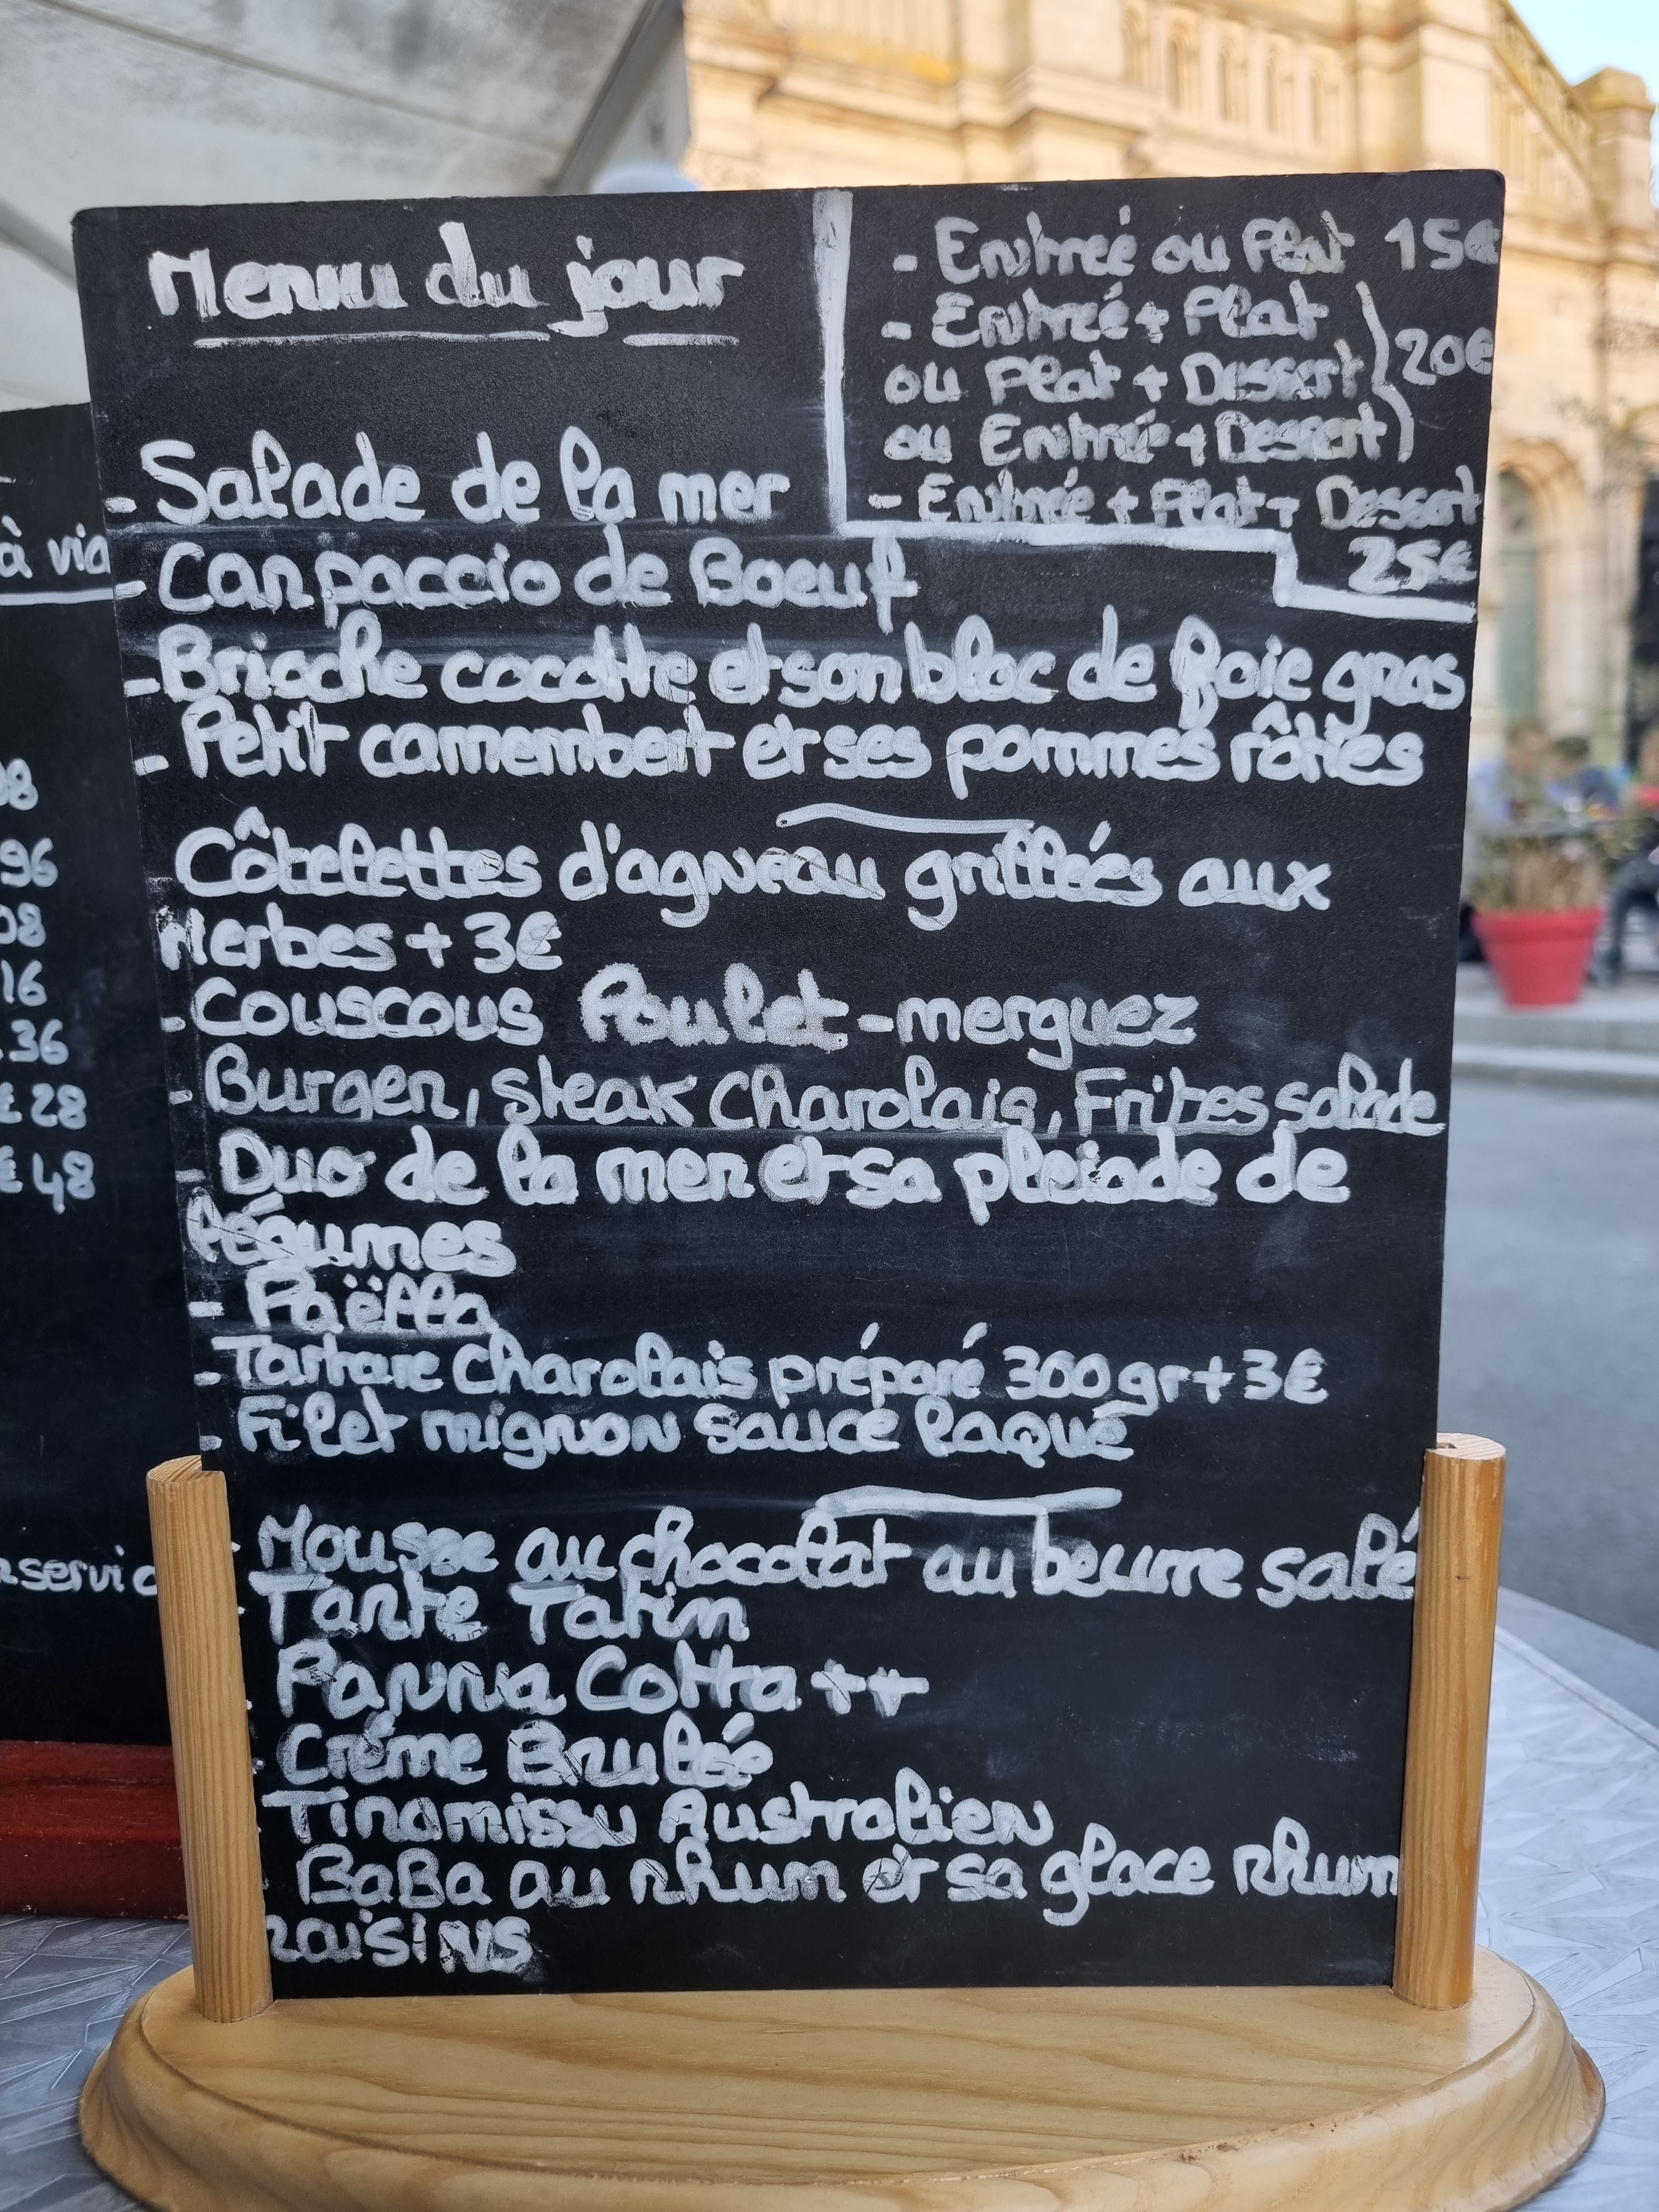 Menu du jour
- Entrée ou Plat 15€
- Entrée + Plat
ou Plat + Dessert
20€
ou Entrée + Dessert
- Entrée + Plat + Dessert
25€
- Salade de la mer
- Carpaccio de Boeuf
- Brioche cocotte et son bloc de foie gras
- Petit camembert et ses pommes rôties
- Côtelettes d'agneau grillées aux
Herbes + 3€
- Couscous Poulet - merguez
- Burger, steak Charolais, Frites salade
- Duo de la mer et sa pleiade de
légumes
- Paëlla
- Tartare Charolais préparé 300 gr + 3€
- Filet mignon sauce laqué
- Mousse au chocolat au beurre salé
- Tarte Tatin
- Panna Cotta ++
- Créme Brulée
- Tiramissu Australien
BaBa au rhum et sa glace rhum
raisins
à via
98
96
08
16
.36
€ 28
€ 48
servic